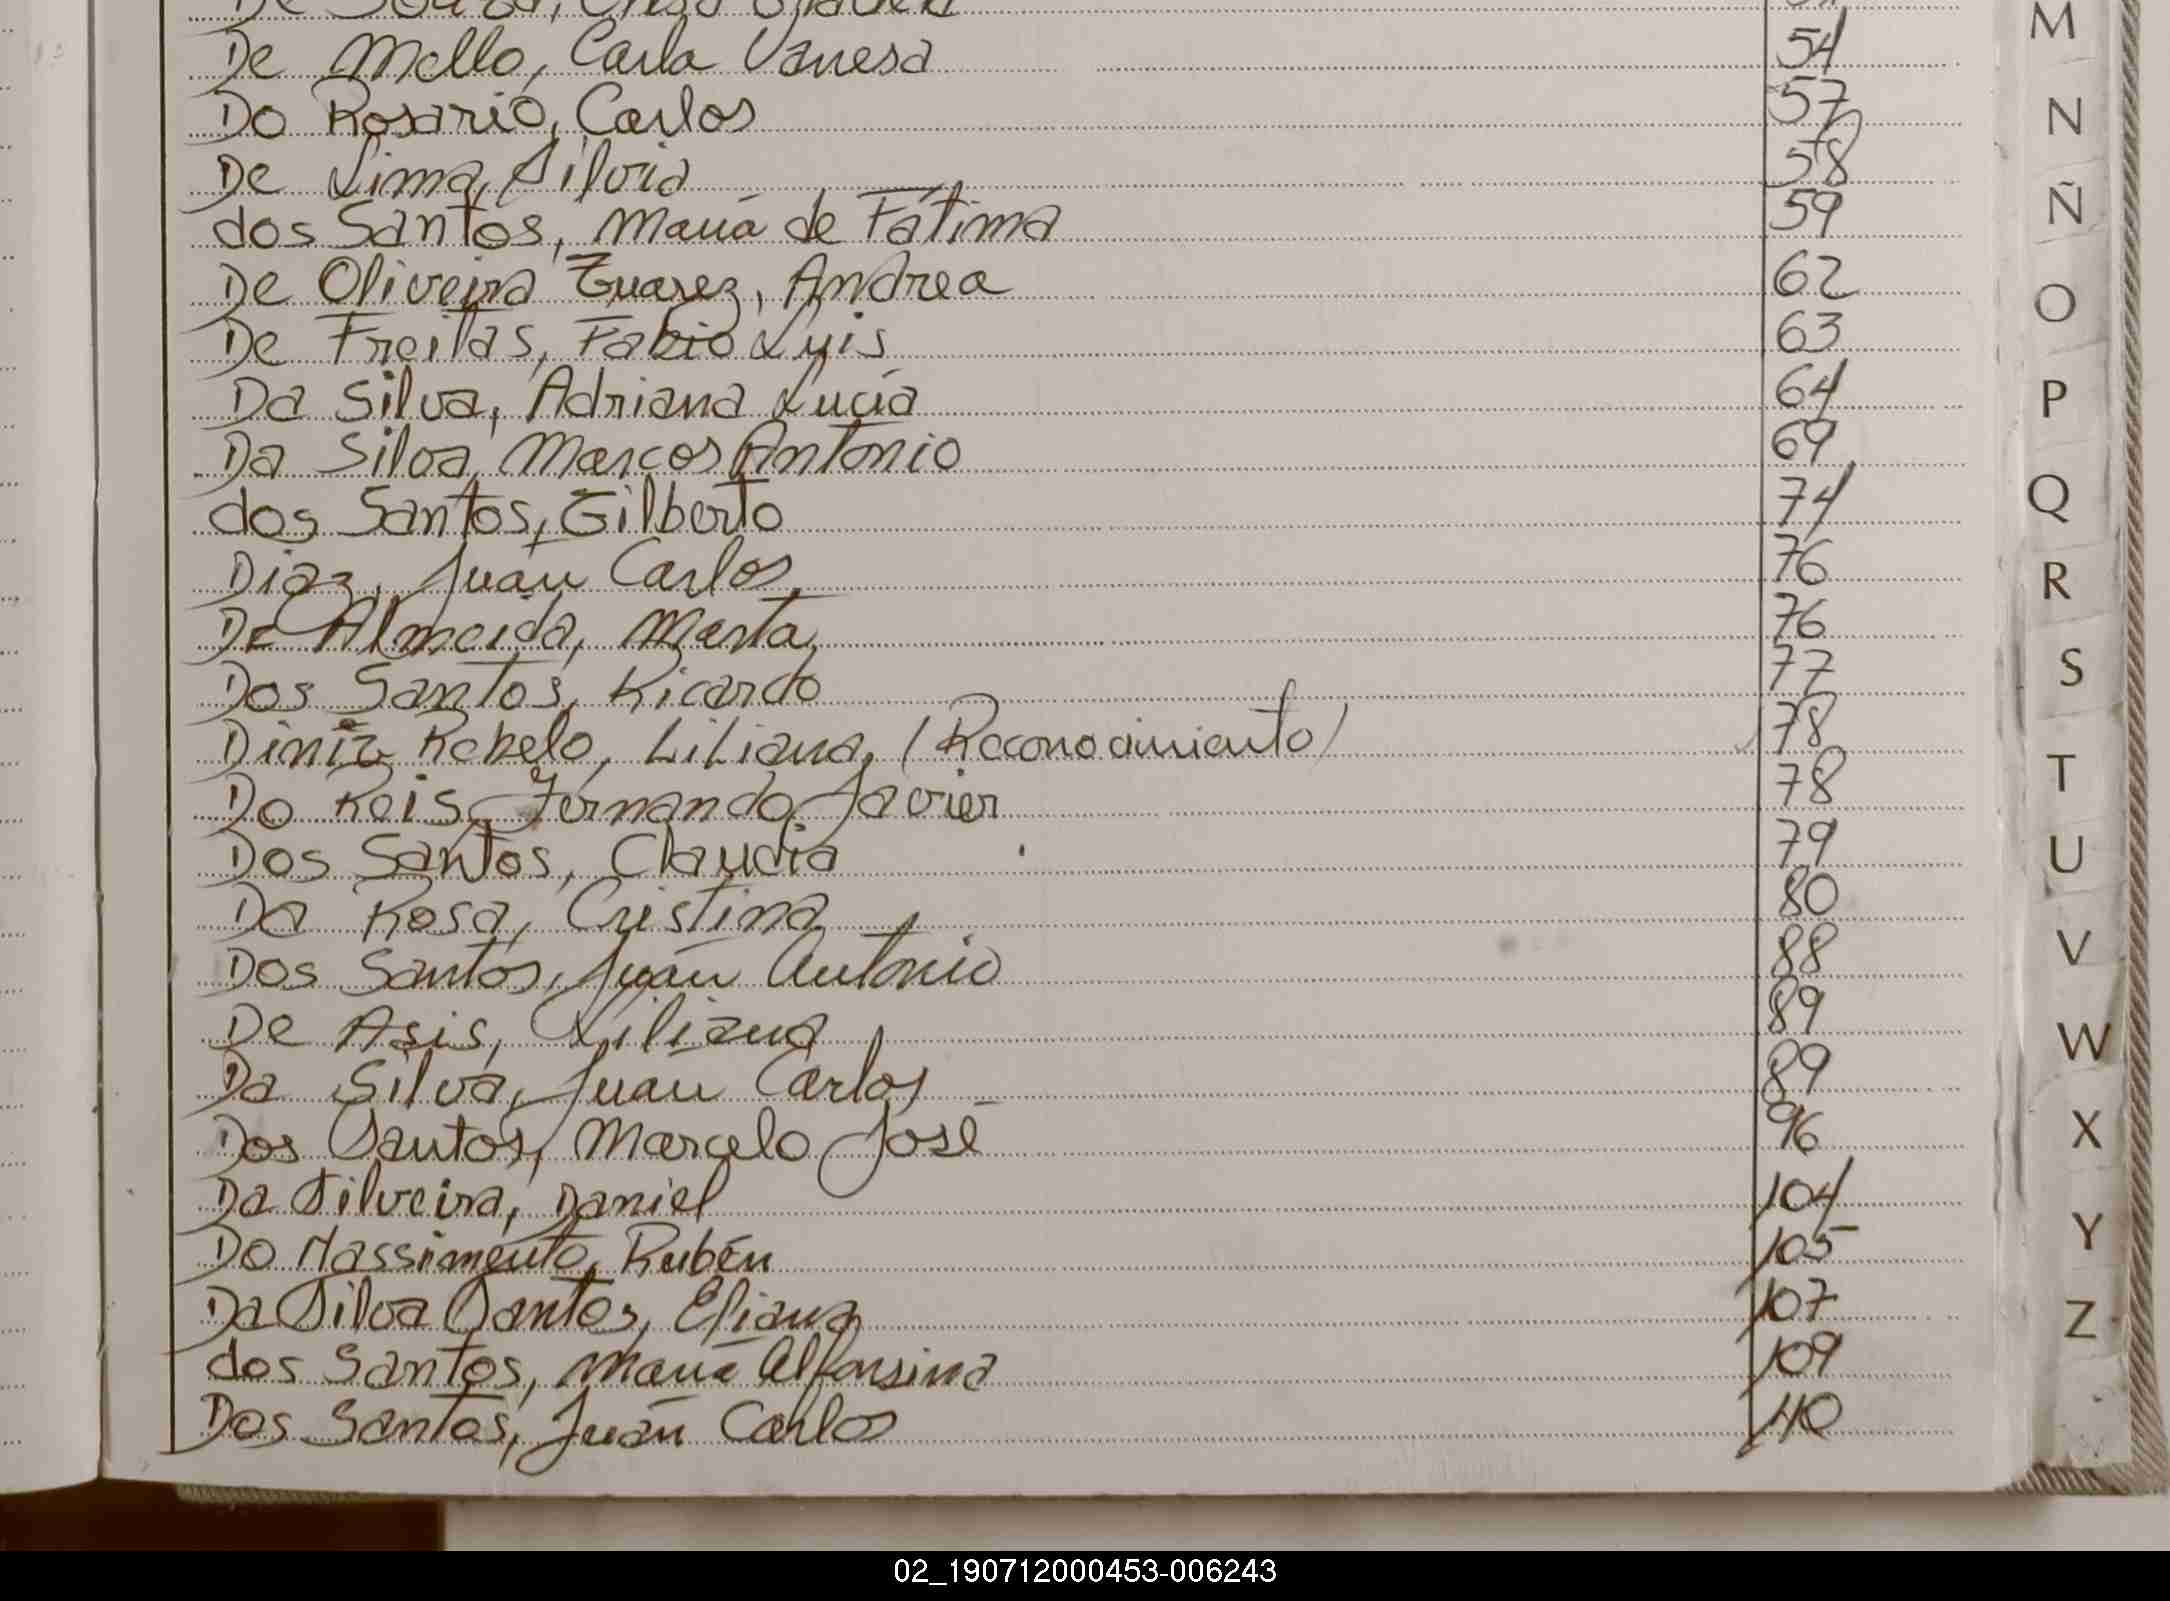 De Mello, Carla Vanesa 54
Do Rosario, Carlos 57
De Lima, Silvia 58
dos Santos, María de Fátima 59
De Oliveira Zuarez, Andrea 62
De Freitas, Fabio Luis 63
Da Silva, Adriana Lucía 64
Da Silva, Marcos Antonio 69
dos Santos, Gilberto 74
Diaz, Juan Carlos 76
De Almeida, Marta 76
Dos Santos, Ricardo 77
Diniz Rebelo, Liliana, (Reconocimiento) 78
Do Reis, Fernando Javier 78
Dos Santos, Claudia 79
Da Rosa, Cristina 80
Dos Santos, Juan Antonio 88
De Asis, Liliana 89
Da Silva, Juan Carlos 89
Dos Santos, Marcelo José 96
Da Silveira, Daniel 104
Do Nassimento, Rubén 105
Da Silva Santos, Eliana 107
dos Santos, María Alfonsina 109
Dos Santos, Juan Carlos 110
M
N
Ñ
O
P
Q
R
S
T
U
V
W
X
Y
Z
02_190712000453-006243